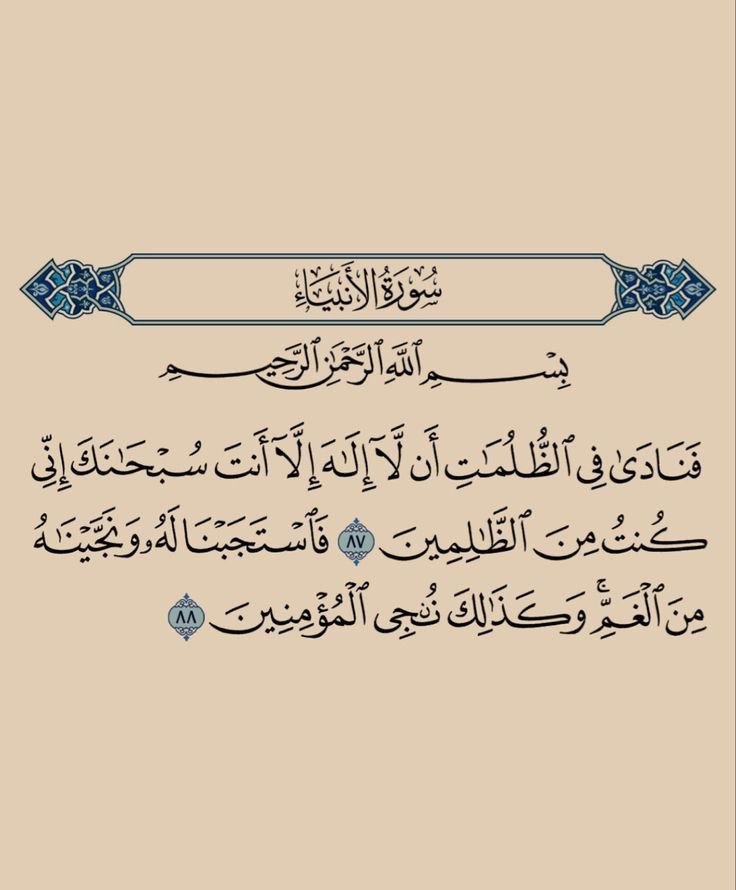 سُورَةُ الأَنبِيَاءِ
بِسْمِ ٱللَّهِ ٱلرَّحْمَٰنِ ٱلرَّحِيمِ
فَنَادَىٰ فِى ٱلظُّلُمَٰتِ أَن لَّآ إِلَٰهَ إِلَّآ أَنتَ سُبْحَٰنَكَ إِنِّى
كُنتُ مِنَ ٱلظَّٰلِمِينَ ٨٧ فَٱسْتَجَبْنَا لَهُۥ وَنَجَّيْنَٰهُ
مِنَ ٱلْغَمِّ ۚ وَكَذَٰلِكَ نُۨجِى ٱلْمُؤْمِنِينَ ٨٨